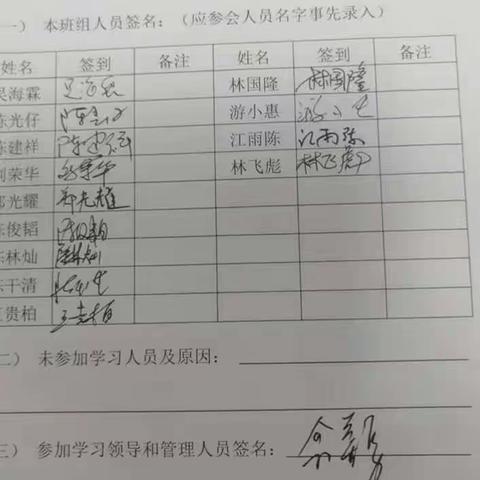 一） 本班组人员签名：（应参会人员名字事先录入）
姓名 签到 备注 姓名 签到 备注
吴海霖 林国隆 林国隆
陈光仔 游小惠
陈建祥 陈建祥 江雨陈 江雨陈
荣华 林飞彪 林飞彪
光耀 郑光耀
俊韬
林灿
干清
贵柏 王贵柏
二） 未参加学习人员及原因：
三） 参加学习领导和管理人员签名：